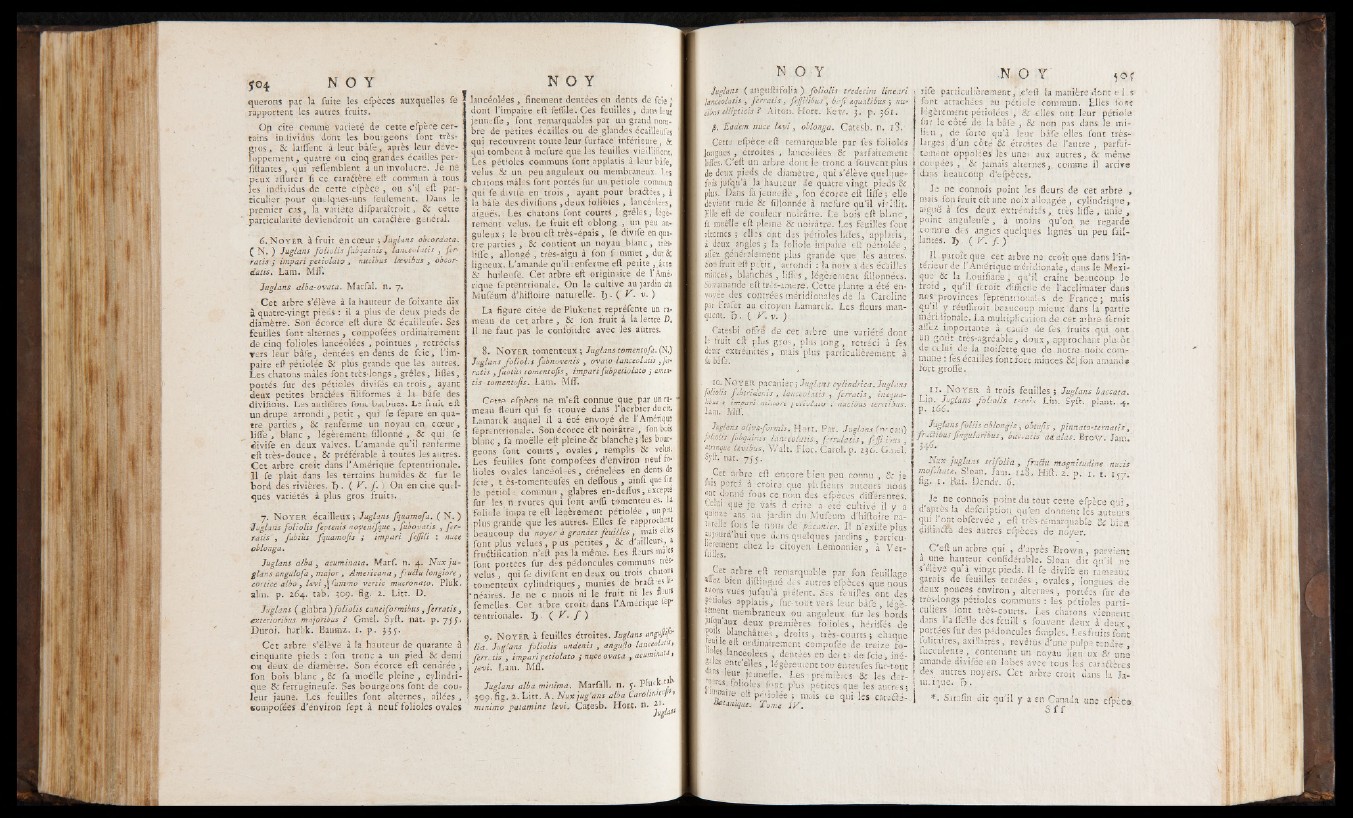 504 N O Y
querons par la suite les espèces auxquelles se
rapportent les autres fruits.
On cite comme variété de cette espèce cer-
tains individus dont les bourgeons sont très-
gros, & laissent à leur base, après leur déve-
loppement, quatre ou cinq grandes écailles per-
sistantes, qui ressemblent à un involucre. Je ne
peux assurer si ce caractère est commun à tous
les individus de cette espèce, ou s'il est par-
ticulier pour quelques-uns seulement. Dans le
premier cas, la variété disparaîtroit, & cette
particularité deviendroit un caractère général.
6. NOYER à fruit en cœur ; Juglans obcordata.
( N. ) Juglans foliolis subquinis, lanceolatis, ser-
ratis ; impari petiolato, nucibus lævibus, obcor-
datis. Lam. Mss.
Juglans alba-ovata. Marsal. n. 7.
Cet arbre s'élève à la hauteur de soixante dix
à quatre-vingt pieds : il a plus de deux pieds de
diamètre. Son écorce est dure & écailleuse. Ses
feuilles sont alternes, composées ordinairement
de cinq folioles lancéolées, pointues, rétrécies
vers leur base, dentées en dents de scie, l'im-
paire est pétiolée & plus grande que les autres.
Les chatons mâles sont très-longs, grêles, lisses,
portés sur des pétioles divisés en trois, ayant
deux petites bractées filiformes à la base des
divisions. Les anthères sont barbues. Le fruit est
un drupe arrondi, petit, qui se sépare en qua-
tre parties, & renferme un noyau en cœur,
lisse, blanc, légèrement sillonné, & qui se
divise en deux valves. L'amande qu'il renferme
est très-douce, & préférable à toutes les autres.
Cet arbre croît dans l'Amérique septentrionale.
Il se plaît dans les terrains humides & sur le
bord des rivières. ♄. ( V. s. ) On en cite quel-
ques variétés à plus gros fruits.
7. NOYER écailleux ; Juglans squamosa. ( N. )
Juglans foliolis septenis novenisque, subovatis, ser-
ratis, subtùs squamosis ; impari sessili : nuce
oblonga.
Juglans alba, acuminata. Mars. n. 4. Nux ju-
glans angulosa, major, Americana, fructu longiore,
cortice albo, levi, summo vertice mucronato. Pluk.
alm. p. 264. tab. 309. fig. 2. Litt. D.
Juglans ( glabra ) foliolis cuneiformibus, serratis,
exterioribus majoribus ? Gmel. Syst. nat. p. 755.
Duroi. harbk. Baumz. 1. p. 335.
Cet arbre s'élève à la hauteur de quarante à
cinquante pieds : son tronc a un pied & demi
ou deux de diamètre. Son écorce est cendrée,
son bois blanc, & sa moëlle pleine, cylindri-
que & ferrugineuse. Ses bourgeons sont de cou-
leur jaune. Les feuilles sont alternes, ailées,
composées d'environ sept à neuf folioles ovales
N O Y
lancéolées, finement dentées en dents de scie ;
dont l'impaire est sessile. Ces feuilles, dans leur
jeunesse, sont remarquables par un grand nom-
bre de petites écailles ou de glandes écailleuses
qui recouvrent toute leur surface inférieure, &
qui tombent à mesure que les feuilles vieillissent.
Les pétioles communs sont applatis à leur base,
velus & un peu anguleux ou membraneux. Les
chatons mâles sont portés sur un pétiole commun
qui se divise en trois, ayant pour bractées, à
la base des divisions, deux folioles, lancéolées,
aiguës. Les chatons sont courts, grêles, légè-
rement velus. Le fruit est oblong, un peu an-
guleux ; le brou est très-épais, se divise en qua-
tre parties, & contient un noyau blanc, très-
lisse, allongé, très-aigu à son sommet, dur &
ligneux. L'amande qu'il renferme est petite, âcre
& huileuse. Cet arbre est originaire de l'Amé-
rique septentrionale. On le cultive au jardin du
Muséum d'histoire naturelle. ♄. ( V. v. )
La figure citée de Plukenet représente un ra-
meau de cet arbre, & son fruit à la lettre D.
Il ne faut pas le confondre avec les autres.
8. NOYER tomenteux ; Juglans tomentosa. (N.)
Juglans foliolis subnovenis, ovato lanceolatis, ser-
ratis, subtùs tomentosis, impari subpetiolato ; amen-
tis tomentosis. Lam. Mss.
Cette espèce ne m'est connue que par un ra-
meau fleuri qui se trouve dans l'herbier du cit.
Lamarck auquel il a été envoyé de l'Amérique
septentrionale. Son écorce est noirâtre, son bois
blanc, sa moëlle est pleine & blanche ; les bour-
geons sont courts, ovales, remplis & velus.
Les feuilles sont composées d'environ neuf fo-
lioles ovales lancéolées, crénelées en dents de
scie, très-tomenteuses en dessous, ainsi que sur
le pétiole commun, glabres en-dessus, excepté
sur les nervures qui sont aussi tomenteuses. la
foliole impaire est légèrement pétiolée, un peu
plus grande que les autres. Elles se rapprochent
beaucoup du noyer à grandes feuilles, mais elles
sont plus velues, plus petites, & d'ailleurs, la
fructification n'est pas la même. Les fleurs mâles
sont portées sur des pédoncules communs très-
velus, qui se divisent en deux ou trois chatons
tomenteux cylindriques, munies de bractées li-
néaires. Je ne connois ni le fruit ni les fleurs
femelles. Cet arbre croît dans l'Amérique sep-
tentrionale. ♄ ( V. s )
9. NOYER à feuilles étroites. Juglans angustifo-
lia. Juglans foliolis undenis, angusto lanceolatis,
serratis, impari petiolato ; nuce ovata, acuminata,
levi. Lam. Mss.
Juglans alba minima. Marsall. n. 5. Pluk. tab.
309. fig. 2. Litt. A. Nux juglans alba Caroliniensis,
minimo putamine levi. Catesb. Hort. n. 21.
Juglans
N O Y
Juglans ( angustifolia ) foliolis tredecim lineari
lanceolatis, serratis, sessilibus, basi æqualibus ; nu-
cibus ellipticis ? Aiton. Kew. 3. p. 361.
β. Eadem nuce levi, oblonga. Catesb. n. 18.
Cette espèce est remarquable par ses folioles
longues, étroites, lancéolées & parfaitement
lisses. C'est un arbre dont le tronc a souvent plus
de deux pieds de diamètre, qui s'élève quelque-
fois jusqu'à la hauteur de quatre vingt pieds &
plus. Dans sa jeunesse, son écorce est lisse ; elle
devient rude & sillonnée à mesure qu'il vieillit.
Elle est de couleur noirâtre. Le bois est blanc,
sa moëlle est pleine & noirâtre. Les feuilles sont
alternes ; elles ont des pétioles lisses, applatis,
à deux angles ; la foliole impaire est pétiolée,
assez généralement plus grande que les autres.
Son fruit est petit, arrondi : la noix a des écailles
minces, blanches, lisses, légèrement sillonnées.
Son amande est très-amère. Cette plante a été en-
voyée des contrées méridionales de la Caroline
par Fraser au citoyen Lamarck. Les fleurs man-
quent. ♄. ( V. v. )
Catesbi offre de cet arbre une variété dont
le fruit est plus gros, plus long, rétréci à ses
deux extrémités, mais plus particulièrement à
sa base.
10. NOYER pacanier ; Juglans cylindrica. Juglans
foliolis subtridenis, lanceolatis, serratis, inæqua-
libus ; impari minori petiolato ; nucibus teretibus.
Lam. Mss.
Juglans oliva-formis. Hort. Par. Juglans (pecan)
foliolis subquinis lanceolatis, serrulatis, sessilibus ;
utrinque lævibus. Walt. Flor. Carol. p. 236. Gmel.
Syst. nat. 755.
Cet arbre est encore bien peu connu, & je
suis porté à croire que plusieurs auteurs nous
ont donné sous ce nom des espèces différentes.
Celui que je vais décrire a été cultivé il y a
quinze ans au jardin du Muséum d'histoire na-
turelle sous le nom de pacanier. Il n'existe plus
aujourd'hui que dans quelques jardins, particu-
lièrement chez le citoyen Lemonnier, à Ver-
sailles.
Cet arbre est remarquable par son feuillage
assez bien distingué des autres espèces que nous
avons vues jusqu'à présent. Ses feuilles ont des
pétioles applatis, sur-tout vers leur base, légè-
rement membraneux ou anguleux sur les bords
jusqu'aux deux premières folioles, hérissés de
poils blanchâtres, droits, très-courts ; chaque
feuille est ordinairement composée de treize fo-
lioles lancéolées, dentées en dents de scie, iné-
gales entr'elles, légèrement tomenteuses sur-tout
dans leur jeunesse. Les premières & les der-
nières folioles sont plus petites que les autres ;
l'impaire est pétiolée ; mais ce qui les caracté-
Botanique. Tome IV.
N O Y 505
rise particulièrement, c'est la manière dont elles
sont attachées au pétiole commun. Elles sont
légèrement pétiolées, & elles ont leur pétiole
sur le côté de la base, & non pas dans le mi-
lieu, de sorte qu'à leur base elles sont très-
larges d'un côté & étroites de l'autre, parfai-
tement opposées les unes aux autres, & même
coupées, & jamais alternes, comme il arrive
dans beaucoup d'espèces.
Je ne connois point les fleurs de cet arbre,
mais son fruit est une noix allongée, cylindrique,
aiguë à ses deux extrémités, très lisse, unie,
point anguleuse, à moins qu'on ne regarde
comme des angles quelques lignes un peu sail-
lantes. ♄ ( V. s. )
Il paroît que cet arbre ne croît que dans l'in-
térieur de l'Amérique méridionale, dans le Mexi-
que & la Louisiane, qu'il craint beaucoup le
froid, qu'il seroit difficile de l'acclimater dans
nos provinces septentrionales de France ; mais
qu'il y réussiroit beaucoup mieux dans la partie
méridionale. La multiplication de cet arbre seroit
assez importante à cause de ses fruits qui ont
un goût très-agréable, doux, approchant plutôt
de celui de la noisette que de notre noix com-
mune : ses écailles sont fort minces & son amande
fort grosse.
11. NOYER à trois feuilles ; Juglans baccata.
Lin. Juglans foliolis ternis. Lin. Syst. plant. 4.
p. 166.
Juglans foliis oblongis, obtusis, pinnato-ternatis,
fructibus singularibus, baccatis ad alas. Brow. Jam.
346.
Nux juglans trifolia, fructu magnitudine nucis
moschatæ. Sloan. Jam. 128. Hist. 2. p. 1. t. 157.
fig. 1. Rai. Dendr. 6.
Je ne connois point du tout cette espèce qui,
d'après la description qu'en donnent les auteurs
qui l'ont observée, est très-remarquable & bien
distincte des autres espèces de noyer.
C'est un arbre qui, d'après Brown, parvient
à une hauteur considérable. Sloan dit qu'il ne
s'élève qu'à vingt pieds. Il se divise en rameaux
garnis de feuilles ternées, ovales, longues de
deux pouces environ, alternes, portées sur de
très-longs pétioles communs : les pétioles parti-
culiers sont très-courts. Les chatons viennent
dans l'aisselle des feuilles souvent deux à deux,
portées sur des pédoncules simples. Les fruits sont
solitaires, axillaires, revêtus d'une pulpe tendre,
succulente, contenant un noyau ligneux & une
amande divisée en lobes avec tous les caractères
des autres noyers. Cet arbre croît dans la Ja-
maïque. ♄.
*. Sarrasin dit qu'il y a en Canada une espèce
S s s